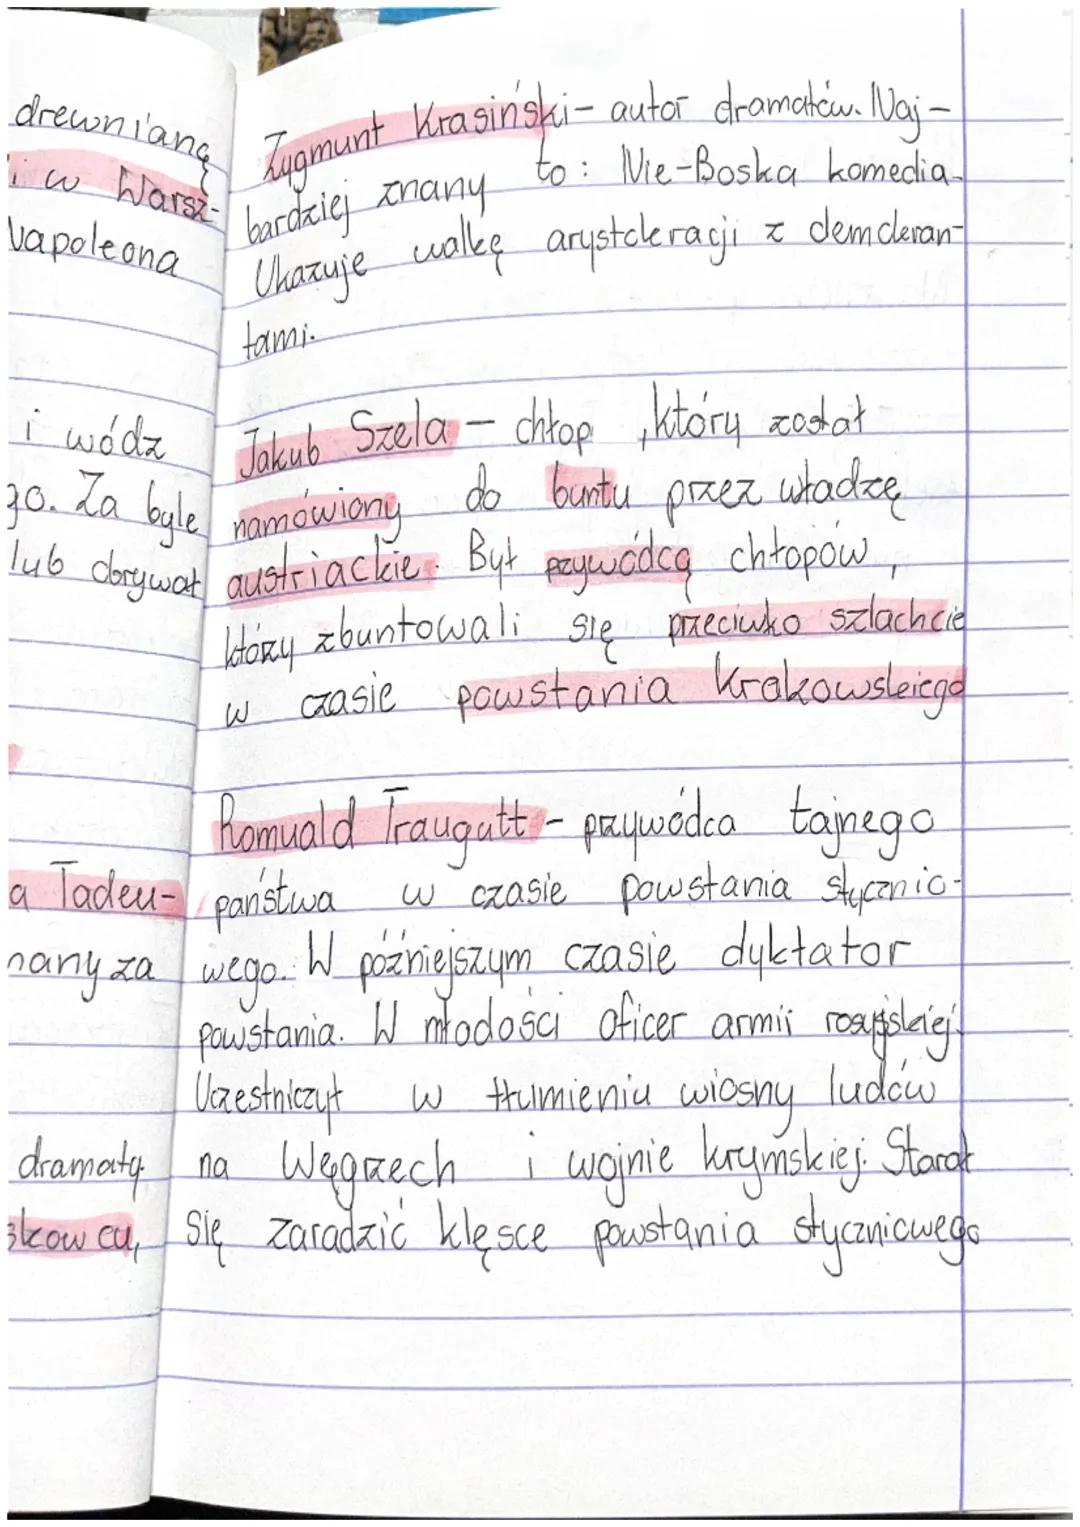 drewnianą
i w Warsz-
Napoleona
i wódz
go. Za byle
lub obrywał
a Tadeu-
nany za
dramaty.
skowcu,
Zygmunt Krasiński - autor dramatów. Naj-
bardziej znany to: Nie-Boska komedia.
Ukazuje walkę arystokracji z demokran-
tami.
Jakub Szela - chłop, który został
namówiony do buntu przez władzę
austriackie. Był przywódcą chłopów,
którzy zbuntowali się przeciwko szlachcie
w czasie powstania Krakowskiego
Romuald Traugutt - przywódca tajnego
państwa w czasie powstania stycznio-
wego. W późniejszym czasie dyktator
powstania. W młodości oficer armii rosyjskiej.
Uczestniczył w tłumieniu wiosny ludów
na Węgrzech i wojnie krymskiej. Starał
się zaradzić klęsce powstania styczniowego